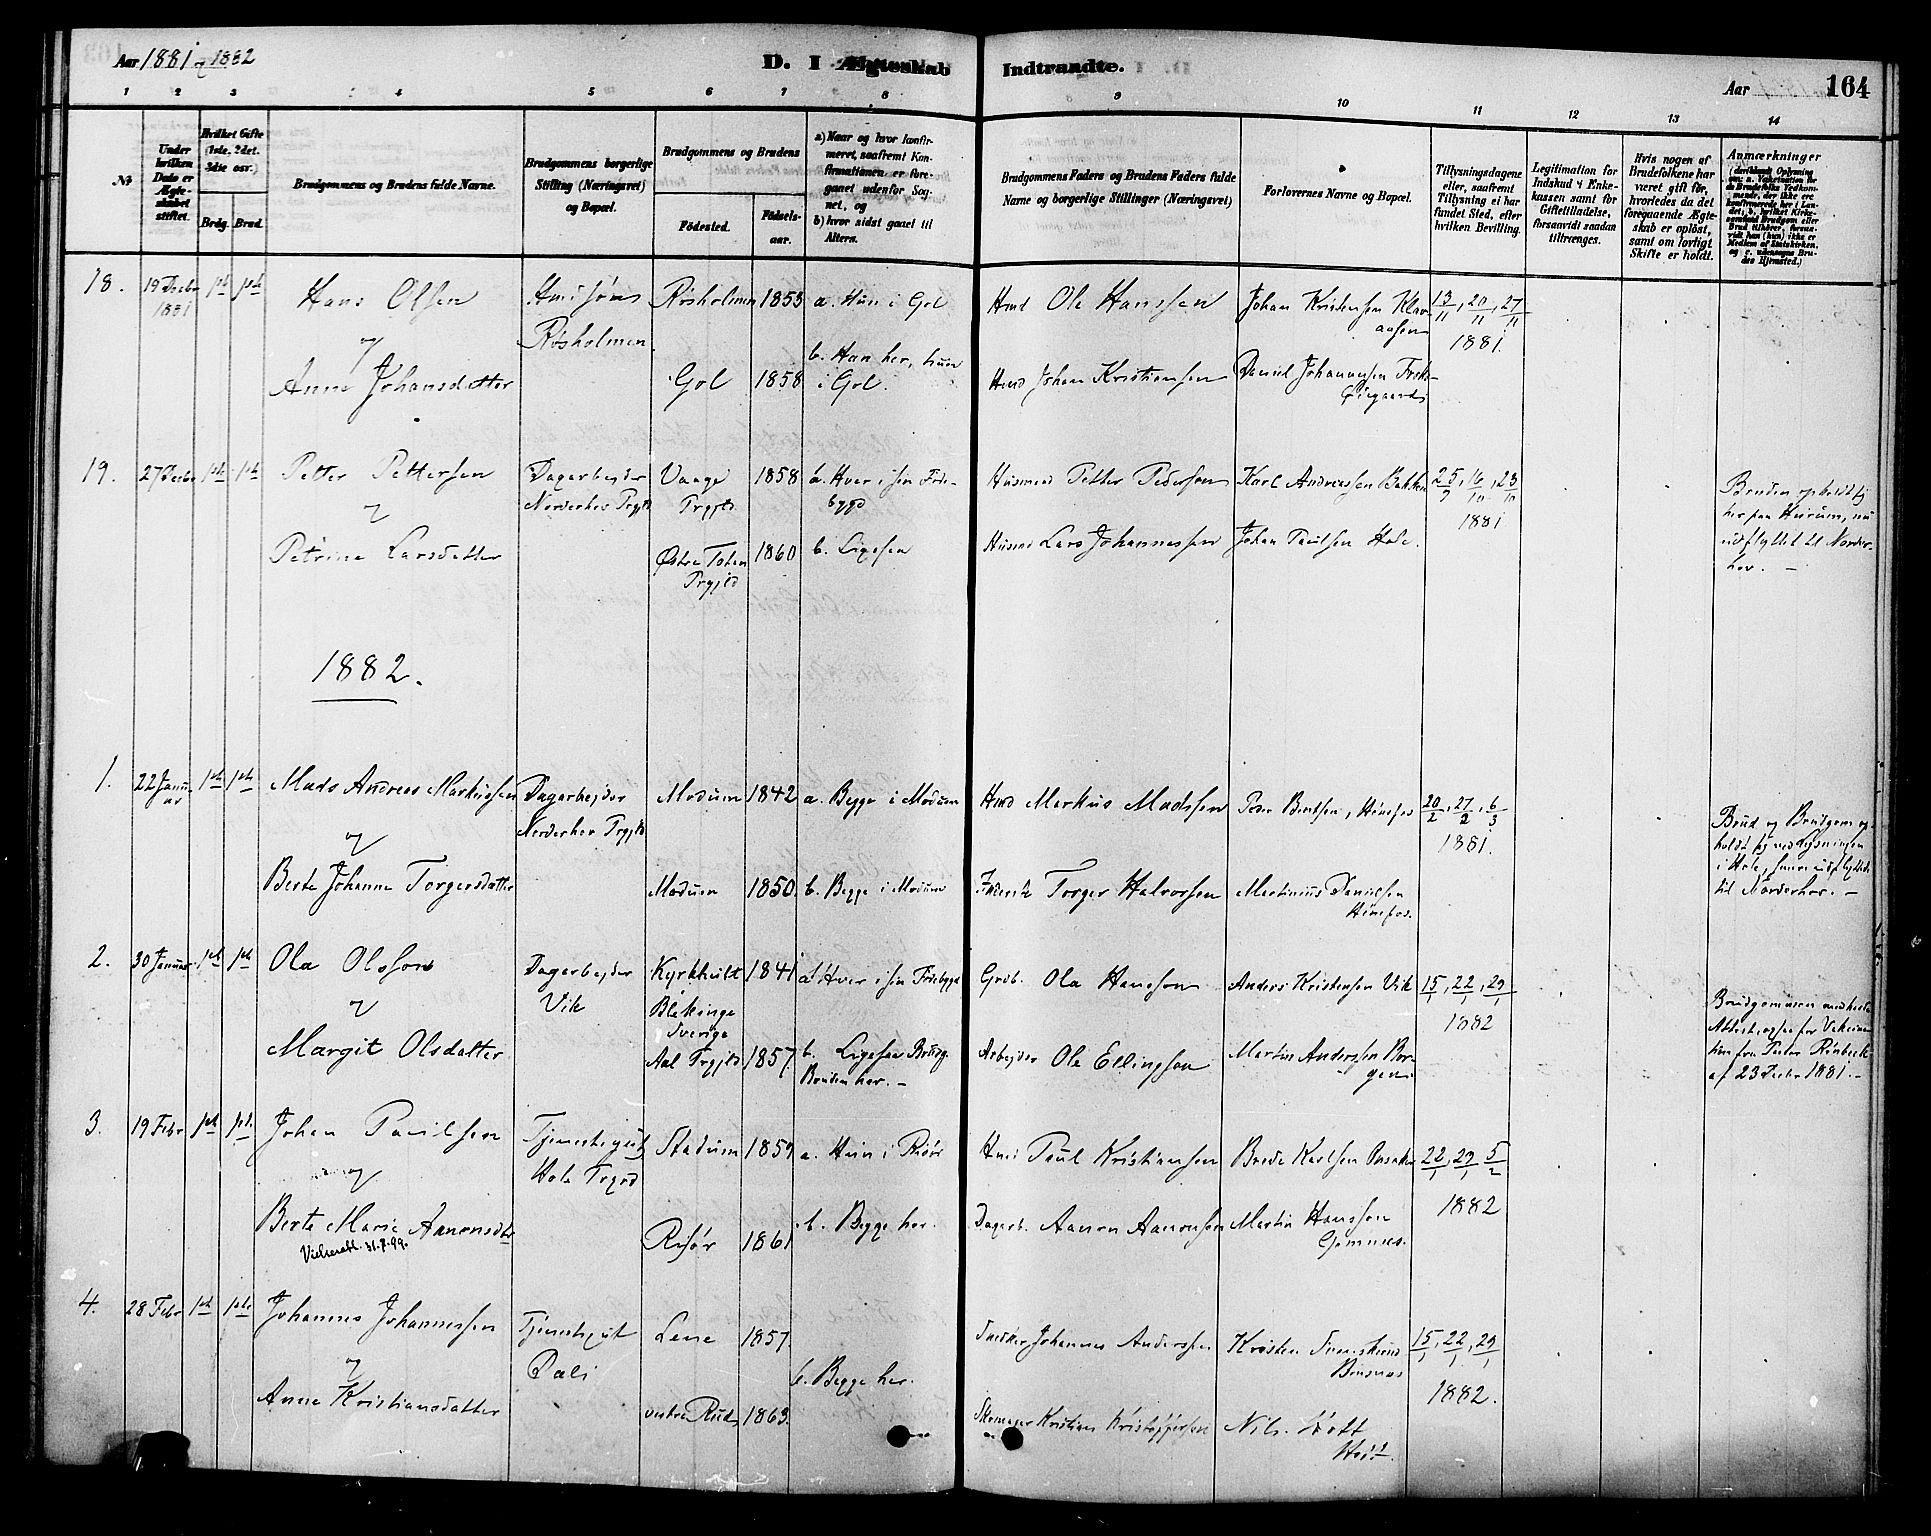 Aar 1881 og 1882
D. I Ægteskab
Indtraadte.
Aar
164
1 2 3 4 5 6 7 8
9 10 11 12 13 14
№
Under hvilken Dato er Ægteskabet stiftet.
Hvilket Gifte (1ste, 2det, 3die osv.)
Brdg. Brud.
Brudgommens og Brudens fulde Navne.
Brudgommens borgerlige Stilling (Næringsvei) og Bopæl.
Brudgommens og Brudens
Fødested.
Fødselsaar.
a) Naar og hvor konfirmeret, saafremt Konfirmationen er foregaaet udenfor Sognet, og
b) hvor sidst gaaet til Alters.
Brudgommens Faders og Brudens Faders fulde Navne og borgerlige Stillinger (Næringsvei)
Forlovernes Navne og Bopæl.
Tillysningsdagene eller, saafremt Tillysning ei har fundet Sted, efter hvilken Bevilling.
Legitimation for Indskud i Enkekassen samt for Giftetilladelse, forsaavidt saadan tiltrænges.
Hvis nogen af Brudefolkene har været gift før, hvorledes da det foregaaende Ægteskab er opløst, samt om lovligt Skifte er holdt.
Anmærkninger
18. 19 Decbr 1881 1ste 1ste
Hans Olsen
Røsholmen
Røsholmen 1853
a. Hun i Gol
Hmd Ole Hanssen
Johan Kristensen Klavaasen
13/11, 20/11, 27/11 1881.
og
Anne Johansdatter
Gol 1858
b. Han her, hun i Gol.
Hmd Johan Kristiansen
Daniel Johannesen
19. 27 Decbr 1ste 1ste
Petter Pettersen
Dagarbejder
Norderhov Prgjld
Vaage Prgjld 1858
a. Hver i sin Fødebygd
Husmand Petter Pederson
Karl Andreassen Bakken
25/9, 16/10, 23/10 1881
Bruden opholdt sig her paa Hurum, nu udflyttet til Norderhov. —
og
Petrine Larsdatter
Østre Toten Prgjld 1860
b. Ligesaa
Husmd Lars Johannessen
Johan Paulsen Hole.
1882.
1. 22 Januar 1ste 1ste
Mads Andreas Markussen
Dagarbejder
Norderhov Prgjld
Modum 1842
a. Begge i Modum
Hmd Markus Madssen
Peder Berntsen, Hønefos
20/2, 27/2, 6/3 1881.
Brud og Brudgom opholdt sig ved Lysningen i Hole, senere udflyttede til Norderhov. —
og
Berte Johanne Torgersdatter
Modum 1850.
b. Begge i Modum
Torger Halvorsen
Martinius Danielsen Hønefos.
2. 30 Januar 1ste 1ste
Ola Olsson
Dagarbejder
Vik
Kyrkhult Blekinge Sverige 1841
a. Hver i sin Fødebygd
Grdb. Ola Hansson
Anders Kristensen Vik
15/1, 22/1, 29/1 1882
Brudgommen medbragte Attest, ogsaa for Vakcination fra Pastor Rönbeck af 23 Decbr 1881. —
og
Margit Olsdatter
Aal Prgjld 1857.
b. Ligesaa Brudg. Bruden her. —
Arbejder Ole Ellingson
Martin Anderssen Borgen
3. 19 Febr 1ste 1ste
Johan Paulsen
Tjenestegut
Hole Prgjld
Stadum 1859
a. Hun i Risør
Hmd Paul Kristiansen
Brede Karlsen
22/1, 29/1, 5/2 1882
og
Berte Marie Aanensdtr
Vielseatt. 31.7.99.
Risør 1861
b. Begge her.
Dagarb. Aanen Aanensen
Martin Hanssen Gjømnes.
4. 28 Febr 1ste 1ste
Johannes Johannessen
Tjenestegut
Dæli
Lene 1857.
Snedker Johannes Anderssen
Kristen
15/1, 22/1, 29/1 1882.
og
Anne Kristiansdatter
vestre Rud 1863.
b. Begge her.
Skomager Kristian Kristoffersen
Nils